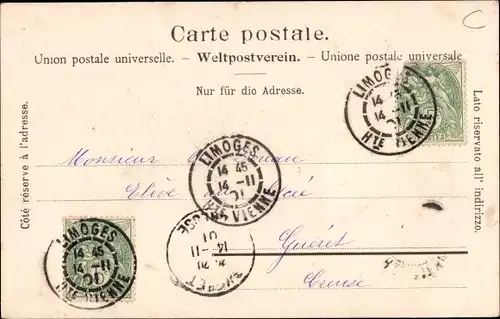 C
Carte postale.
Union postale universelle. – Weltpostverein. – Unione postale universale
Nur für dio Adresse.
Côté réservé à l'adresse.
Lato riservato all' indirizzo.
LIMOGES
14 45
14 -11
01
HTE VIENNE
LIMOGES
14 45
14 -11
01
HTE VIENNE
LIMOGES
14 45
14 -11
01
HTE VIENNE
Monsieur
Elève au
Guéret
Creuse
GUERET
14 -11
01
CREUSE